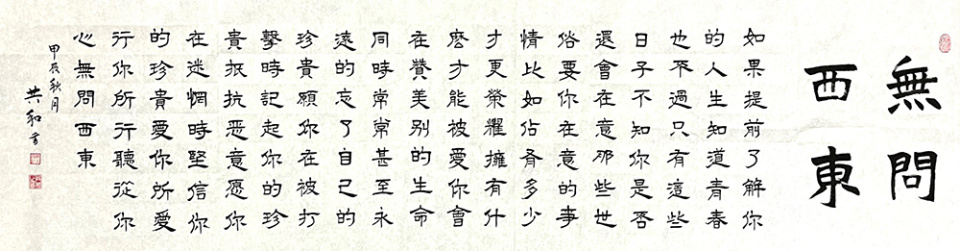 無問
西東
如果提前了解你
的人生知道青春
也不過只有這些
日子不知你是否
還會在意那些世
俗要你在意的事
情比如佔有多少
才更榮耀擁有什
麼才能被愛你會
在贊美別的生命
同時常常甚至永
遠的忘了自己的
珍貴願你在被打
擊時記起你的珍
貴抵抗恶意愿你
在迷惘時堅信你
的珍貴愛你所愛
行你所行聽從你
心無問西東
甲辰秋月
共和書